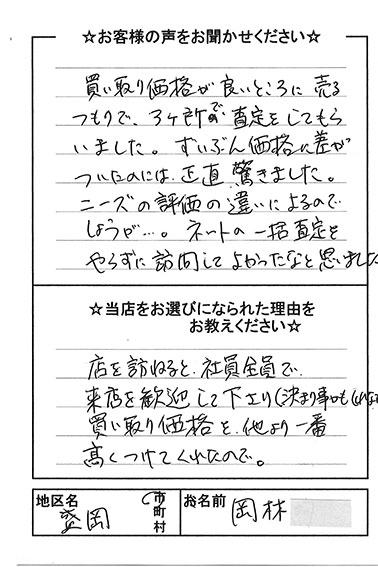 ☆お客様の声をお聞かせください☆
買い取り価格が良いところに売る
つもりで、3ヶ所で査定をしてもら
いました。ずいぶん価格に差が
ついたのには、正直、驚きました。
ニーズの評価の違いによるので
しょうが…。ネットの一括査定を
やらずに訪問してよかったなと思いました
☆当店をお選びになられた理由を
お教えください☆
店を訪ねると、社員全員で、
来店を歓迎して下さり(決まり事かもしれな
買い取り価格を、他より一番
高くつけてくれたので。
地区名 盛岡 市町村
お名前 岡林